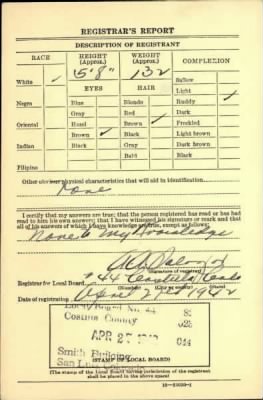 REGISTRAR'S REPORT
DESCRIPTION OF REGISTRANT
RACE HEIGHT (Approx.) WEIGHT (Approx.) COMPLEXION
5' 8" 132
White ✓ Sallow
EYES HAIR Light
Negro Blue Blonde Ruddy ✓
Gray Red Dark
Oriental Hazel Brown ✓ Freckled
Brown ✓ Black Light brown
Indian Black Gray Dark brown
Bald Black
Filipino
Other obvious physical characteristics that will aid in identification
None
I certify that my answers are true; that the person registered has read or has had
read to him his own answers; that I have witnessed his signature or mark and that
all of his answers of which I have knowledge are true, except as follows:
None to my Knowledge
(Signature of registrar)
Registrar for Local Board # 44 Costilla Colo
(Number) (City or county) (State)
Date of registration April 27th 1942
Local Board No. 44
Costilla County
APR 27 1942
Smith Building
San Luis, Colorado
(STAMP OF LOCAL BOARD)
(The stamp of the Local Board having jurisdiction of the registrant
shall be placed in the above space)